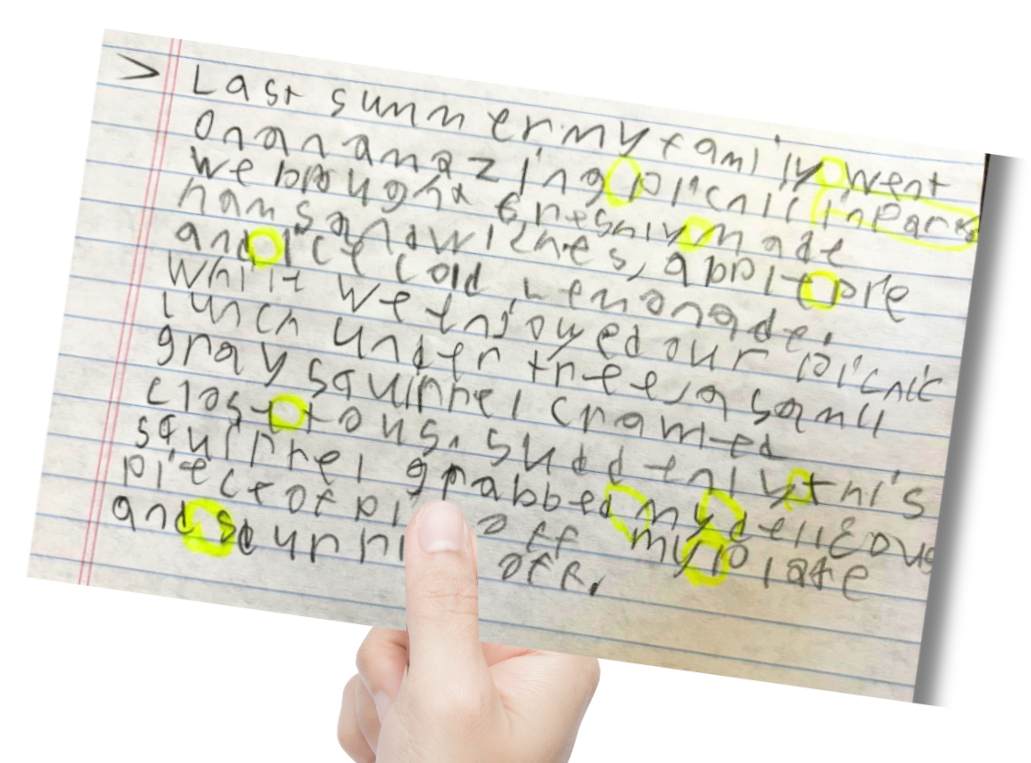 > Last summer my family went
on an amazing picnic in Park
we brought freshly made
ham sandwiches, apple pie
and ice cold lemonade.
While we enjoyed our picnic
lunch under trees, a small
gray squirrel
close to us. suddenly this
squirrel grabbed my delicious
piece of off my plate
and off.